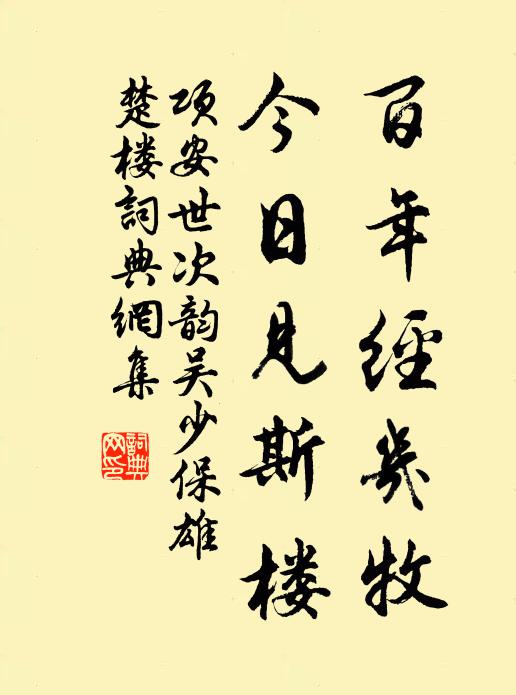 百年經幾牧
今日見斯楼
项安世次韵吴少保雄
楚楼詞典網集
詞典網印